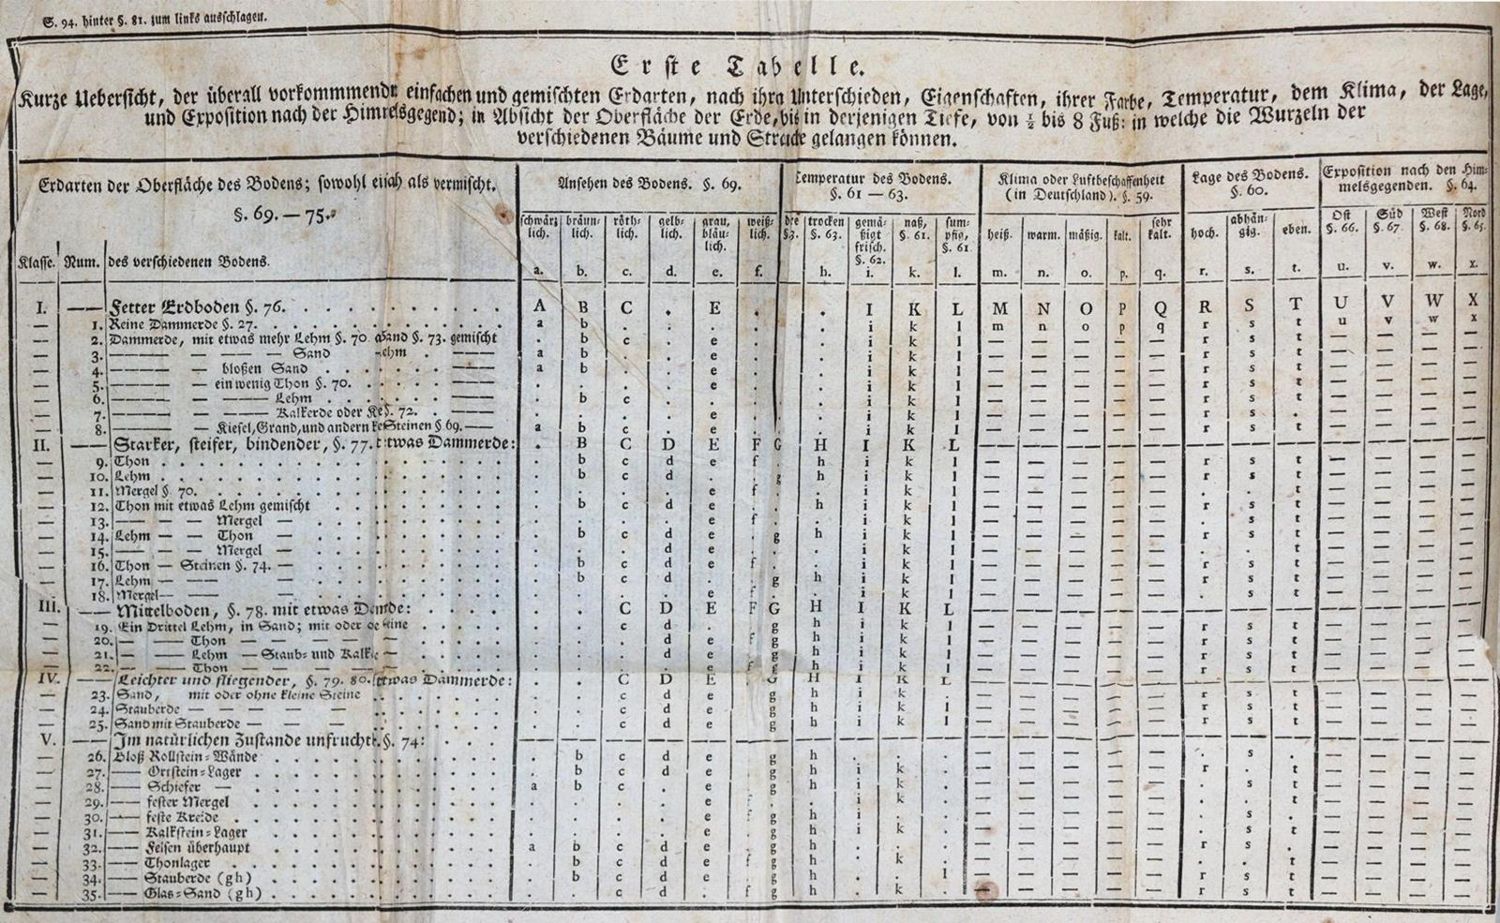 S. 94. hinter §. 81. zum links ausschlagen.
Erste Tabelle.
Kurze Uebersicht, der überall vorkommmende einfachen und gemischten Erdarten, nach ihrn Unterschieden, Eigenschaften, ihrer Farbe, Temperatur, dem Klima, der Lage,
und Exposition nach der Himmelsgegend; in Absicht der Oberfläche der Erde, bis in derjenigen Tiefe, von ½ bis 8 Fuß: in welche die Wurzeln der
verschiedenen Bäume und Sträuche gelangen können.
Erdarten der Oberfläche des Bodens; sowohl als vermischt. §. 69. — 75.
Ansehen des Bodens. §. 69.
Temperatur des Bodens. §. 61 — 63.
Klima oder Luftbeschaffenheit (in Deutschland). §. 59.
Lage des Bodens. §. 60.
Exposition nach den Himmelsgegenden. §. 64.
Klasse. Num. des verschiedenen Bodens.
schwärzlich. bräunlich. röthlich. gelblich. grau, bläulich. weißlich. trocken §. 63. gemäßigt frisch. §. 62. naß, §. 61. sumpfig, §. 61 heiß. warm. mäßig. kalt. sehr kalt. hoch. abhängig. eben. Ost §. 66. Süd §. 67. West §. 68. Nord §. 65.
a. b. c. d. e. f. h. i. k. l. m. n. o. p. q. r. s. t. u. v. w. x.
I. — Fetter Erdboden §. 76. A B C . E . . I K L M N O P Q R S T U V W X
— 1. Reine Dammerde §. 27. a b . . . . . i k l m n o p q r s t u v w x
— 2. Dammerde, mit etwas mehr Lehm §. 70. Sand §. 73. gemischt . b c . e . . i k l — — — — — r s t — — — —
— 3. — — — — Sand — — a b . . e . . i k l — — — — — r s t — — — —
— 4. — — bloßen Sand — a b . . e . . i k l — — — — — r s t — — — —
— 5. — — ein wenig Thon §. 70. — . . . . e . . i k l — — — — — r s t — — — —
— 6. — — — Lehm — . b c . . . . i k l — — — — — r s t — — — —
— 7. — — — Kalkerde oder §. 72. — . . . . e . . i k l — — — — — r s . — — — —
— 8. — — Kiesel, Grand, und andern Steinen §. 69. — a b c . e . . i k l — — — — — r s t — — — —
II. — Starker, steifer, bindender, §. 77. etwas Dammerde: . B C D E F G H I K L — — — — — — — — — — — —
— 9. Thon . b c d e f . h i k l — — — — — r s t — — — —
— 10. Lehm . b c d . . g h i k l — — — — — r s t — — — —
— 11. Mergel §. 70. . . . . e f . . i k l — — — — — . . t — — — —
— 12. Thon mit etwas Lehm gemischt . b c d e . . h i k l — — — — — r s t — — — —
— 13. — — — Mergel — . . . . e f . . i k l — — — — — . s t — — — —
— 14. Lehm — — Thon — . b c d e . g h i k l — — — — — r s t — — — —
— 15. — — — Mergel — . . . d e . . . i k l — — — — — . . t — — — —
— 16. Thon — Steinen §. 74. — . b c d e f . . i k l — — — — — r s t — — — —
— 17. Lehm — — — . b c d . . g h i k l — — — — — r s t — — — —
— 18. Mergel — — — . . . . e f . . i k l — — — — — . s t — — — —
III. — Mittelboden, §. 78. mit etwas . . C D E F G H I K L — — — — — — — — — — — —
— 19. Ein Drittel Lehm, in Sand; mit oder . . c d . . g h i k l — — — — — r s t — — — —
— 20. — — Thon — . . . d e f g h i k l — — — — — r s t — — — —
— 21. — — Lehm — Staub- und — . . . d e . g h i k l — — — — — r s t — — — —
— 22. — — Thon — . . . . e f g h i k l — — — — — r s t — — — —
IV. — Leichter und fliegender, §. 79. 80. etwas Dammerde: . . C D E . G H I K L — — — — — — — — — — — —
— 23. Sand, mit oder ohne kleine Steine . . c d e . g h i k . — — — — — r s t — — — —
— 24. Stauberde — — — — — . . c d e . g h i k l — — — — — r s t — — — —
— 25. Sand mit Stauberde — — — . . c d e . g h i k l — — — — — r s t — — — —
V. — Im natürlichen Zustande §. 74:
— 26. Bloß Rollstein-Wände . b c d e . g h . . . — — — — — . s . — — — —
— 27. — Ortstein-Lager . b c d e . g h i k . — — — — — r . t — — — —
— 28. — Schiefer — a b c . e . g h i k . — — — — — . s t — — — —
— 29. — fester Mergel . . . . e f . h i k . — — — — — . . t — — — —
— 30. — feste Kreide . . . . e f g h i . . — — — — — . s . — — — —
— 31. — Kalkstein-Lager . . . . e . g h i k . — — — — — . s t — — — —
— 32. — Felsen überhaupt a b c d e . g h . . . — — — — — r s . — — — —
— 33. — Thonlager . b c d e f g h . k . — — — — — . . t — — — —
— 34. — Stauberde (gh) . b c d e . g h . . l — — — — — r s t — — — —
— 35. — Glas-Sand (gh) . . c d . f g h . k . — — — — — r s t — — — —